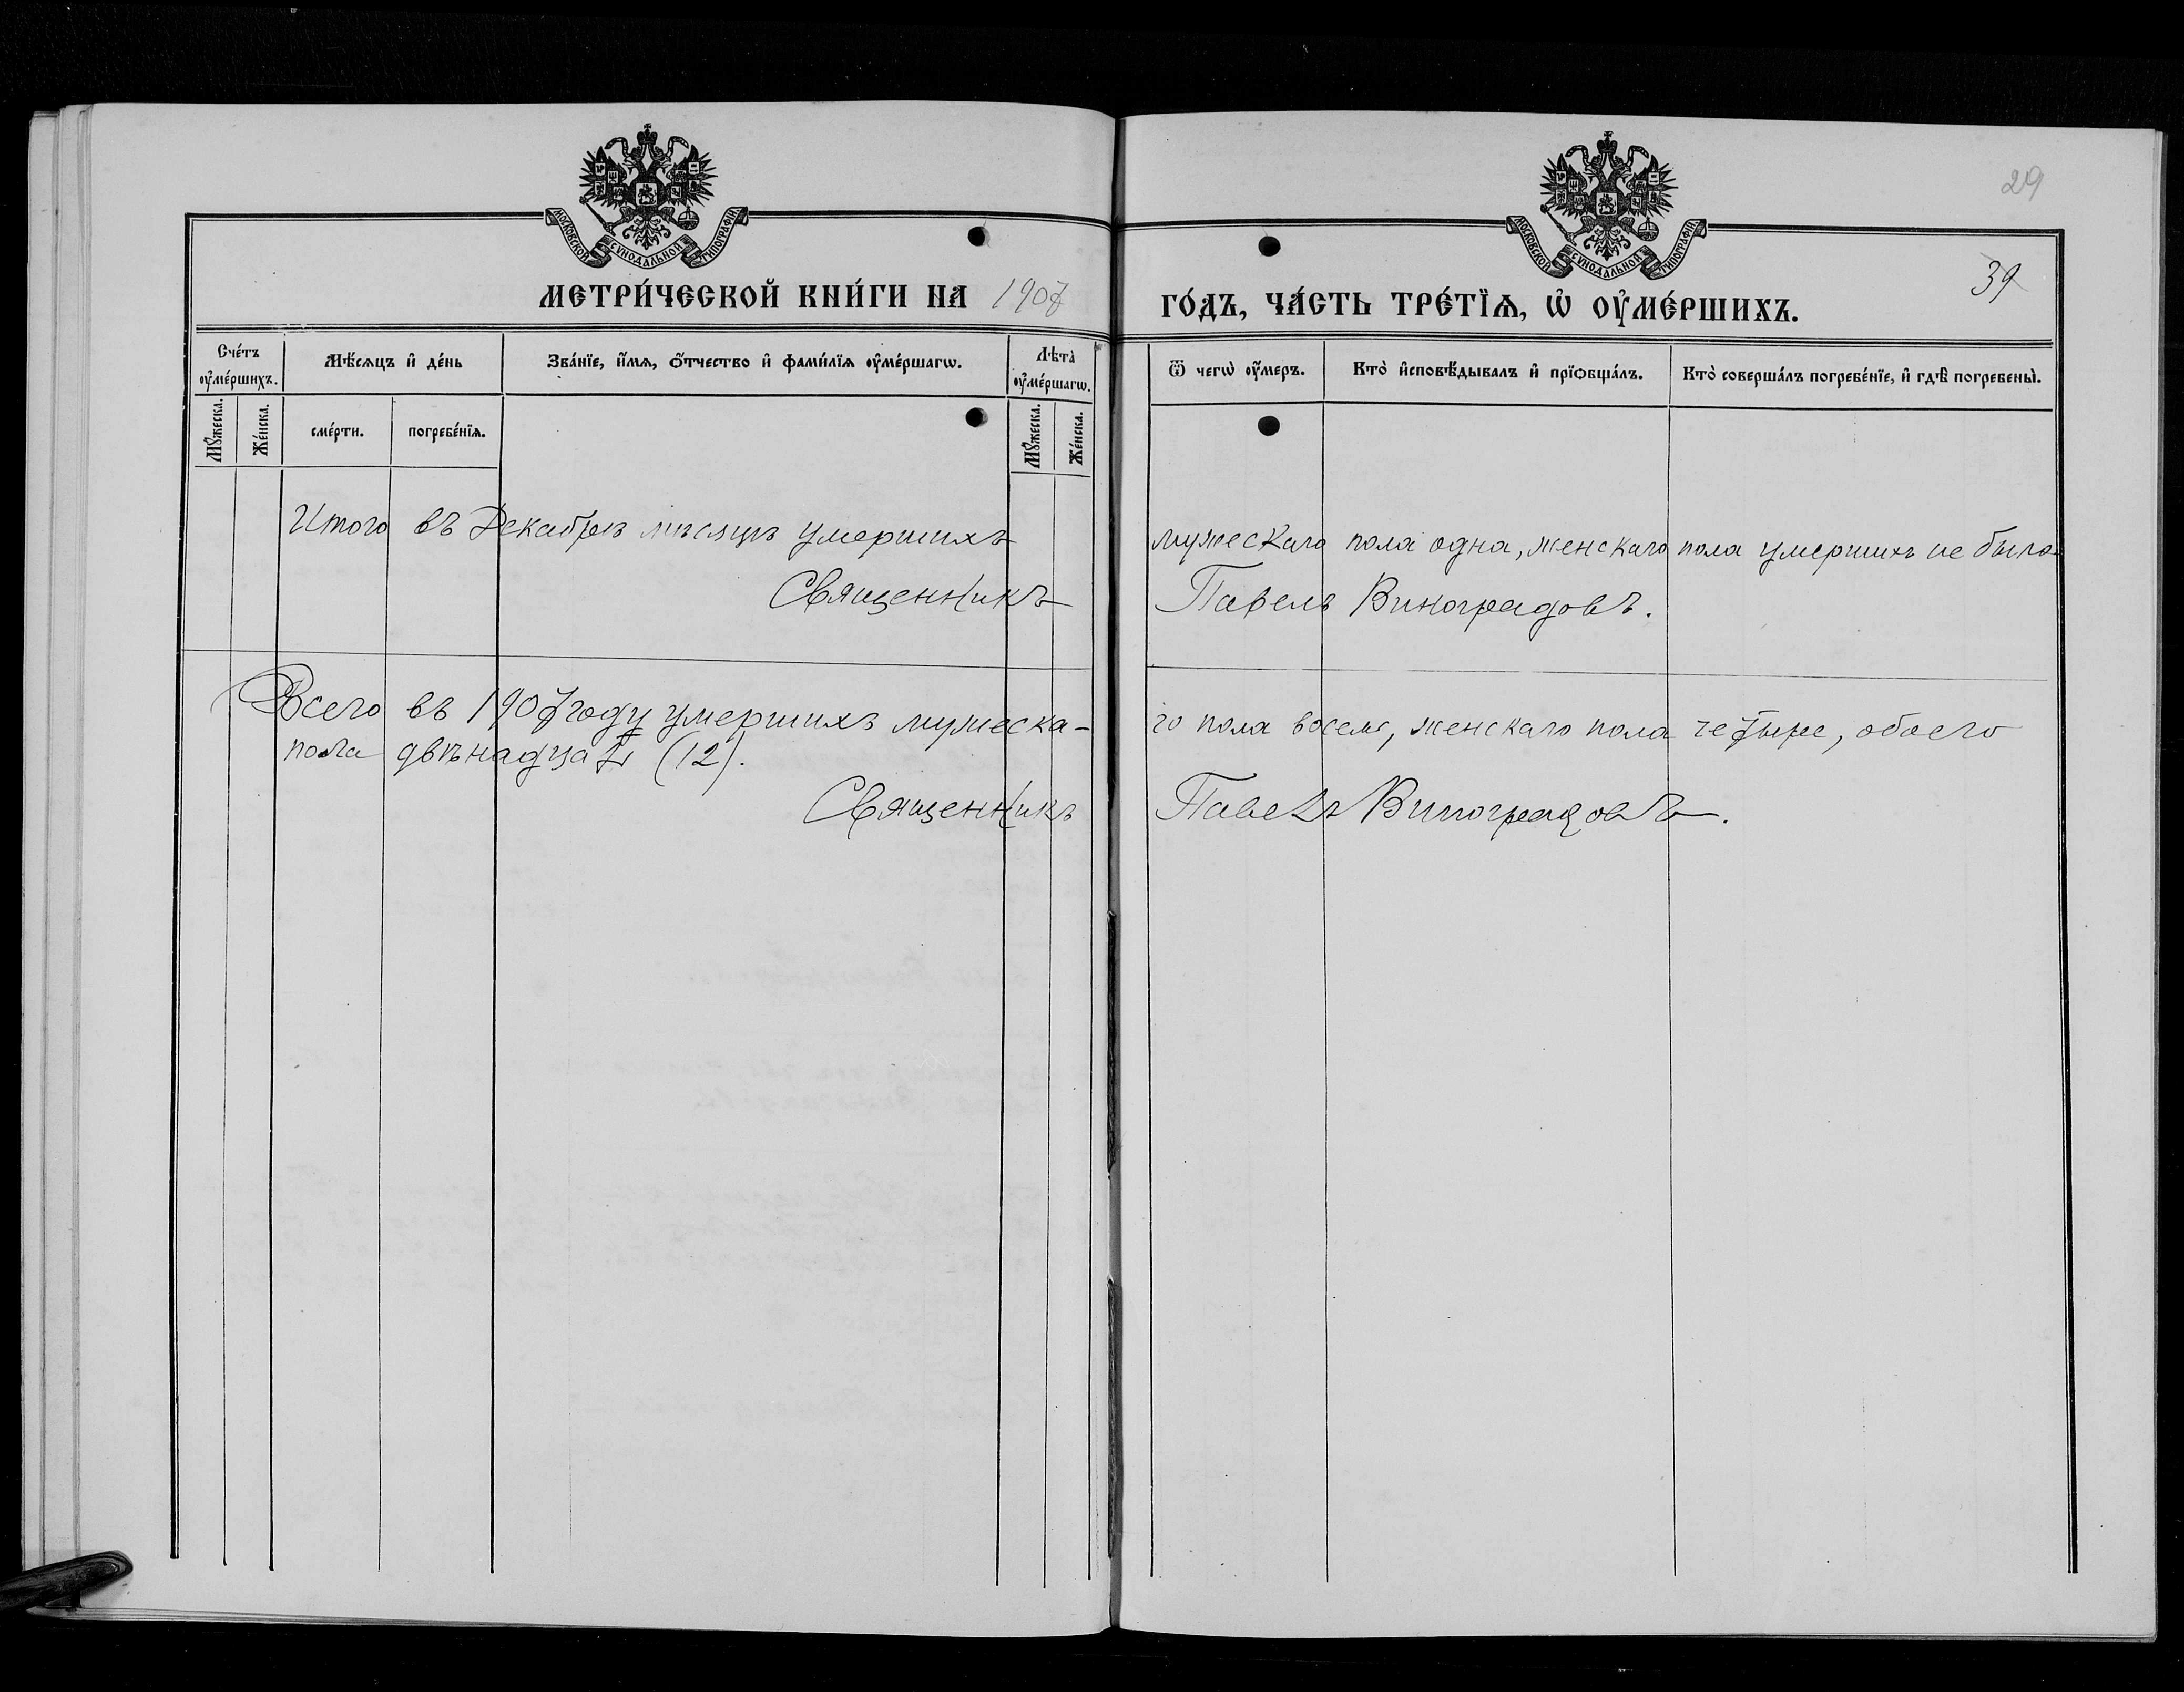 29
39
МОСКОВСКОЙ СѴНОДАЛЬНОЙ ТИПОГРАФІИ.
МОСКОВСКОЙ СѴНОДАЛЬНОЙ ТИПОГРАФІИ.
МЕТРИ́ЧЕСКОЙ КНИ́ГИ НА 1907 ГО́ДЪ, ЧА́СТЬ ТРЕ́ТЇѦ, Ѡ҆ ОУ҆МЕ́РШИХЪ.
Сче́тъ оу҆ме́ршихъ.
Мѣ́сѧцъ и҆ де́нь
Зва́нїе, и҆́мѧ, ѻ҆́тчество и҆ фами́лїѧ оу҆ме́ршагѡ.
Лѣта̀ оу҆ме́ршагѡ.
Ѿ чегѡ̀ оу҆́меръ.
Кто̀ и҆сповѣ́дывалъ и҆ прїѻбща́лъ.
Кто̀ соверша́лъ погребе́нїе, и҆ гдѣ̀ погребены̀.
Мꙋ́жеска.
Же́нска.
сме́рти.
погребе́нїѧ.
Мꙋ́жеска.
Же́нска.
Итого въ Декабрѣ мѣсяцѣ умершихъ мужескаго пола одна, женскаго пола умершихъ не было
Священникъ Павелъ Виноградовъ.
Всего въ 1907 году умершихъ мужеска-го пола восемь, женскаго пола четыре, обоего
пола двѣнадцать (12).
Священникъ Павелъ Виноградовъ.